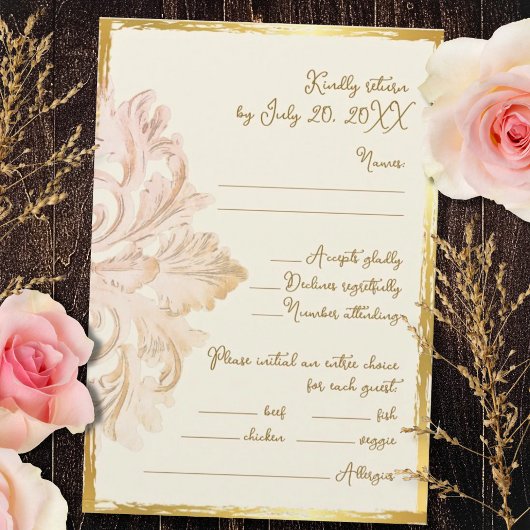 Kindly return
by July 20, 20XX
Names:
Accepts gladly
Declines regretfully
Number attending
Please initial an entree choice
for each guest:
beef fish
chicken veggie
Allergies